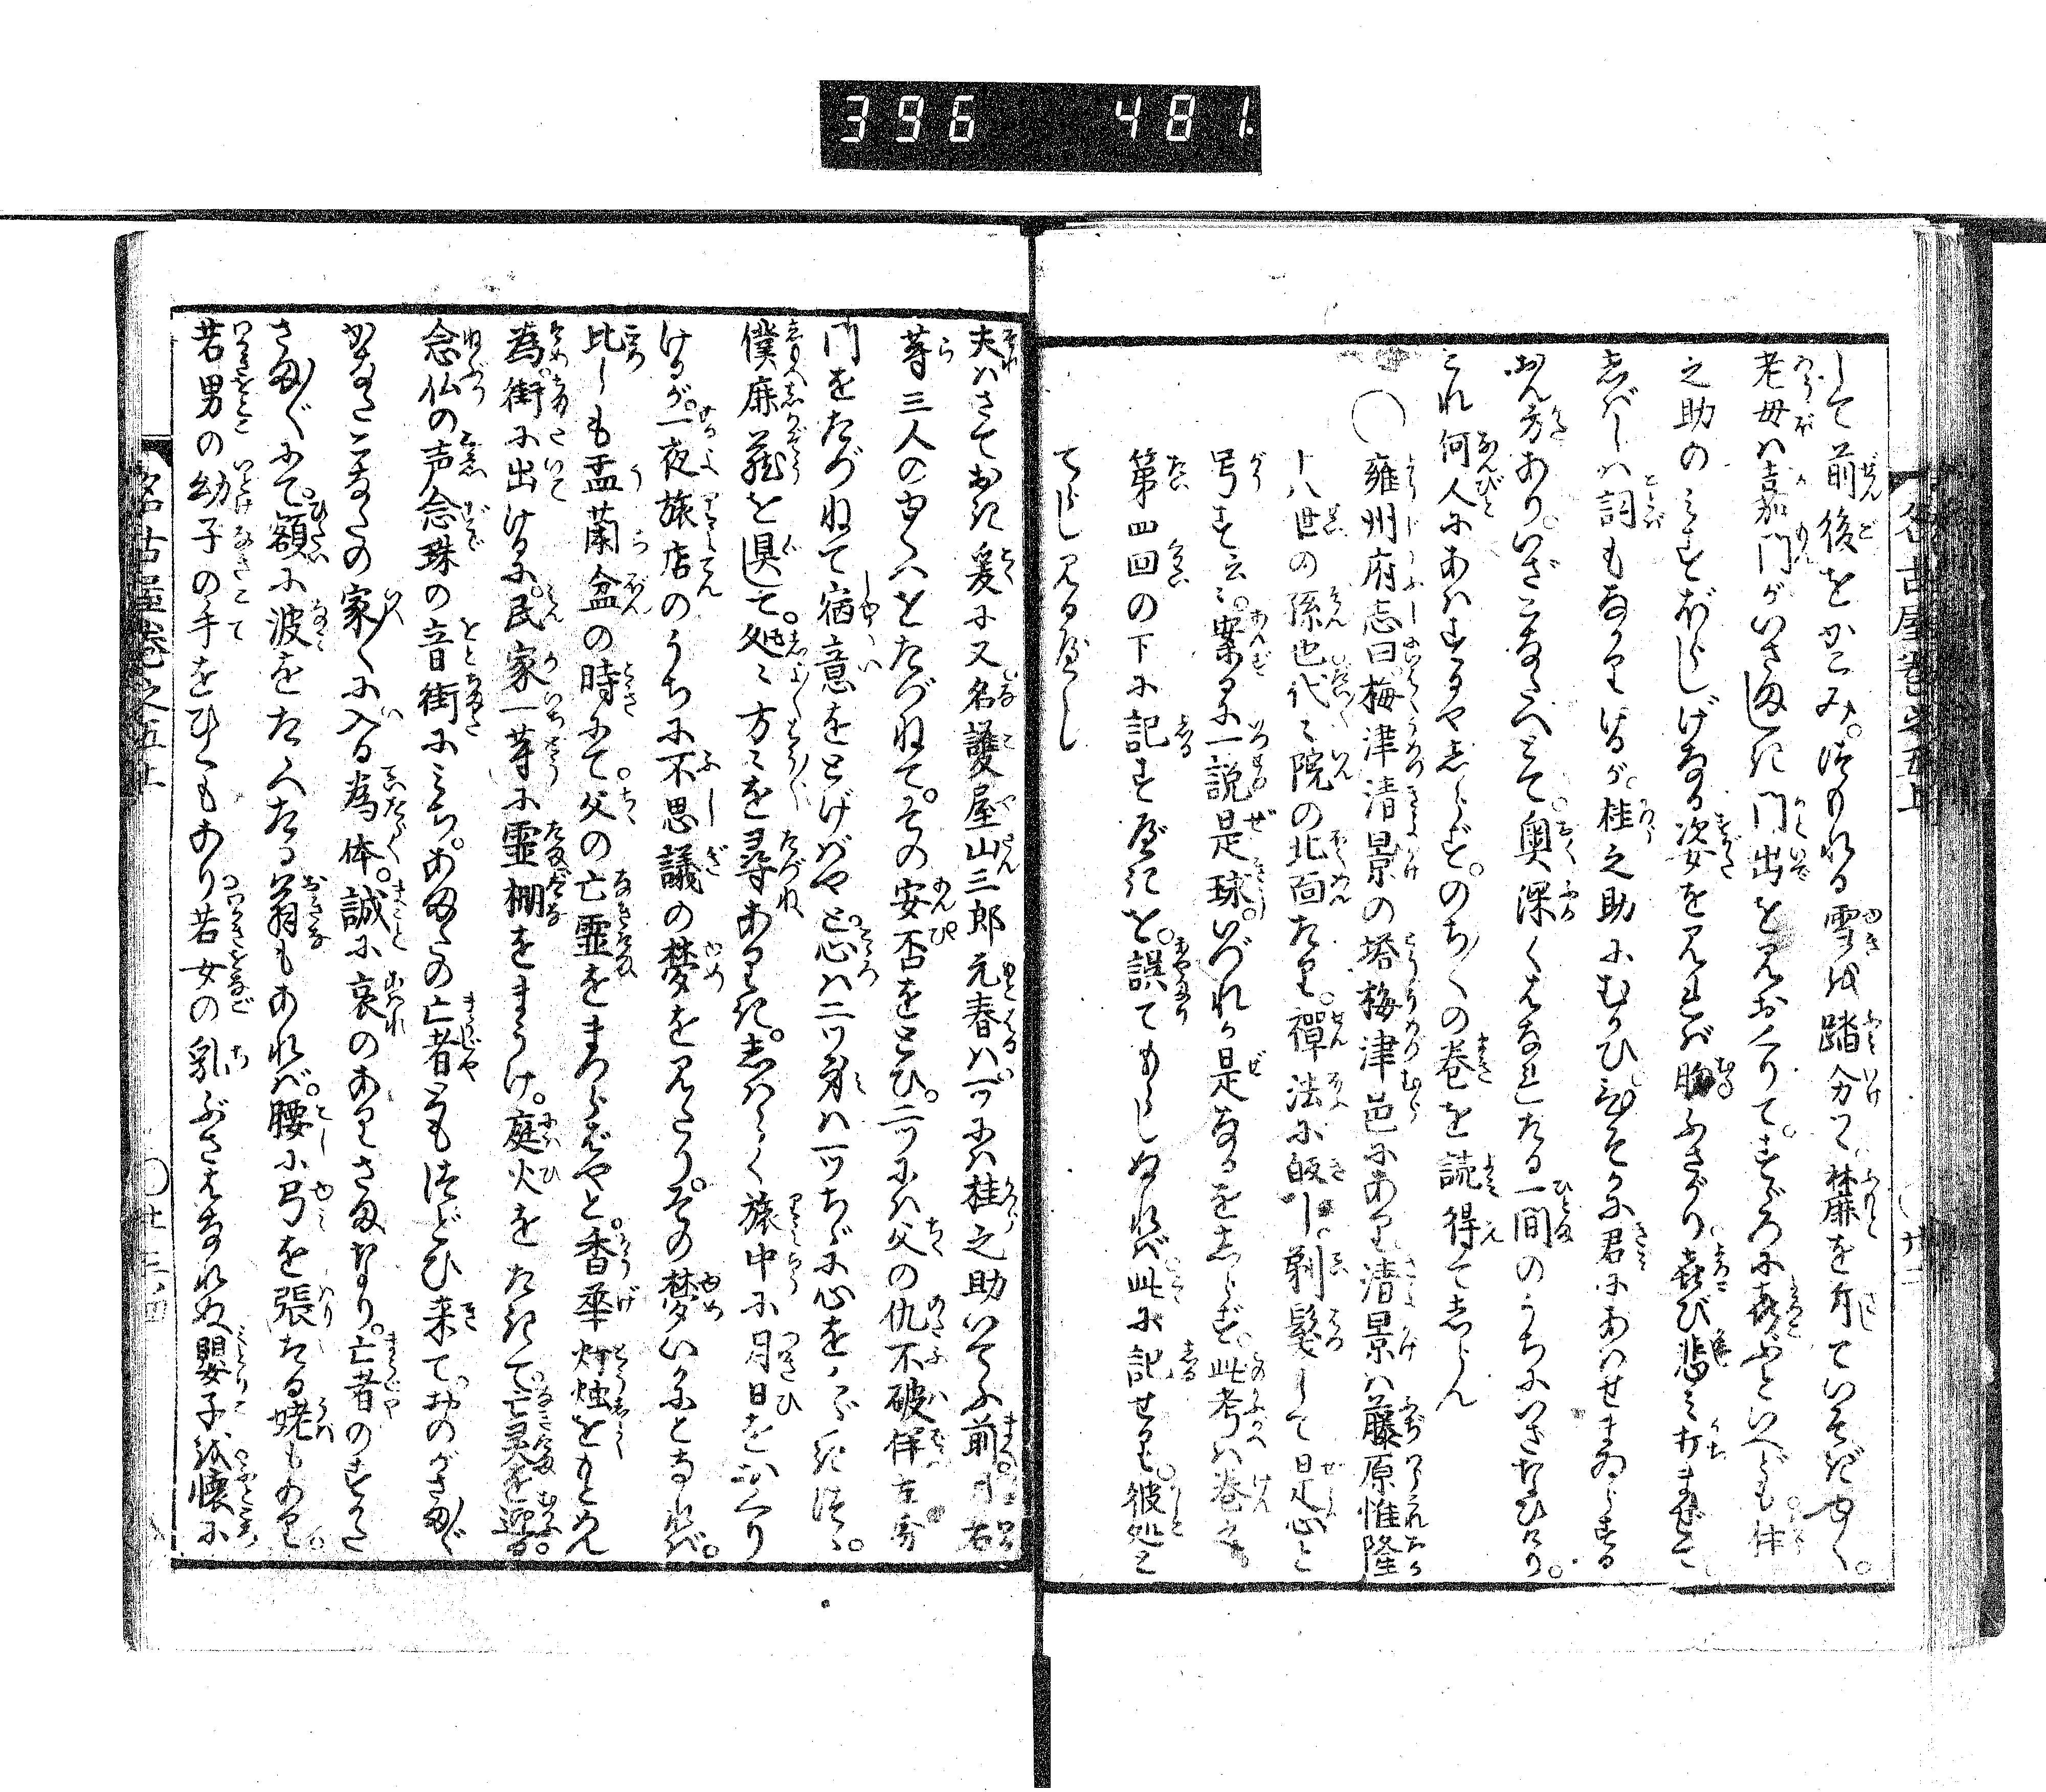 396 481.
名古屋巻之五上
して前後をかこみ。つもれる雪を踏分て麓を斥ていそぎゆく。
老母は嘉門がいさましき門出を見おくりて。すゞろに喜ぶといへども
之助のみすぼらしげなる姿を見れば胸ふさがり。喜び悲み打まぜて
しばしは詞もなかりけるが。桂之助にむかひ。ひそかに君にあはせまゐらする
おん方あり。いざこなたへとて。奥深くしなしたる一間のうちにいざなひけり。
これ何人にあはするやしらず。のち〱の巻を読得てしらん
○雍州府志曰梅津清景の塔梅津邑にあり清景は藤原惟隆
十八世の孫也代々院の北面たり。禅法に皈し。剃髪して是心と
号す云々。案るに一説是球。いづれか是なるをしらず。此考は巻之
第四回の下に記すべきを。誤てもらしぬれば此に記せり。彼処と
てらし見るべし
夫はさておき爰に又名護屋山三郎元春は。一ツには桂之助いてふ前月若
等三人のゆくへをたづねて。その安否をとひ。二ツには父の仇不破伴左衛
門をたづねて宿意をとげばやと。心は二ツ身は一ツちゞに心をくだきつゝ。
僕鹿蔵を具して。処々方々を尋ありき。しばらく旅中に月日をおくり
けるが。一夜旅店のうちに不思議の夢を見たり。その夢いかにとなれば。
比しも盂蘭盆の時にて。父の亡霊をまつらばやと。香華灯燭をもとめん
為。街に出けるに。民家一等に霊棚をまうけ。庭火をたきて。亡灵を迎る。
念仏の声念珠の音街にみち。あまたの亡者どもつどひ来て。おのがさま〲
かなたこなたの家〱に入る為体。誠に哀のありさまなり。亡者のすがた
さま〲にて。額に波をたゝへたる翁もあれば。腰に弓を張たる姥もあり
若男の幼子の手をひくもあり若女の乳ぶさはなれぬ嬰子を懐に
名古屋巻之五上